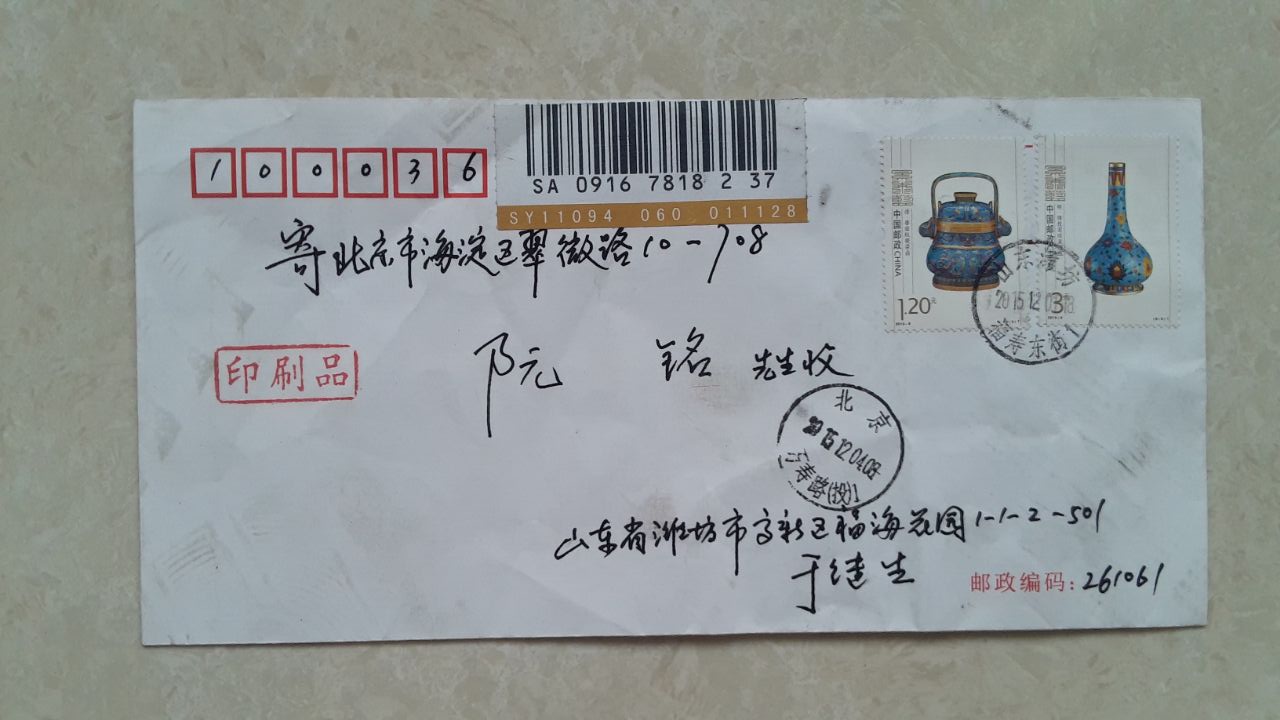 100036
SA 0916 7818 2 37
SY11094 060 011128
寄北京市海淀区翠微路10-708
阮 铭 先生收
印刷品
中国邮政 CHINA
1.20元
中国邮政
3
山东潍坊
2015.12.01.18
福寿东街1
北京
2015.12.04.08
万寿路(投)1
山东省潍坊市高新区福海花园1-1-2-501
于建生
邮政编码：261061